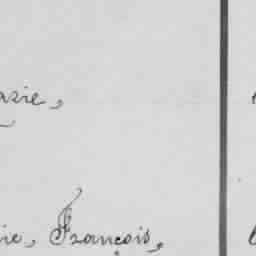 arie,
ie, François,